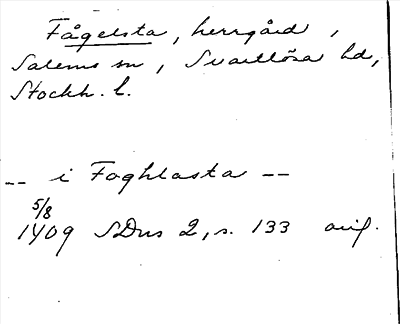 Fågelsta, herrgård,
Salems sn, Svartlösa hd,
Stockh. l.
-- i Foghlasta --
5/8
1409 SDns 2, s. 133 avif.